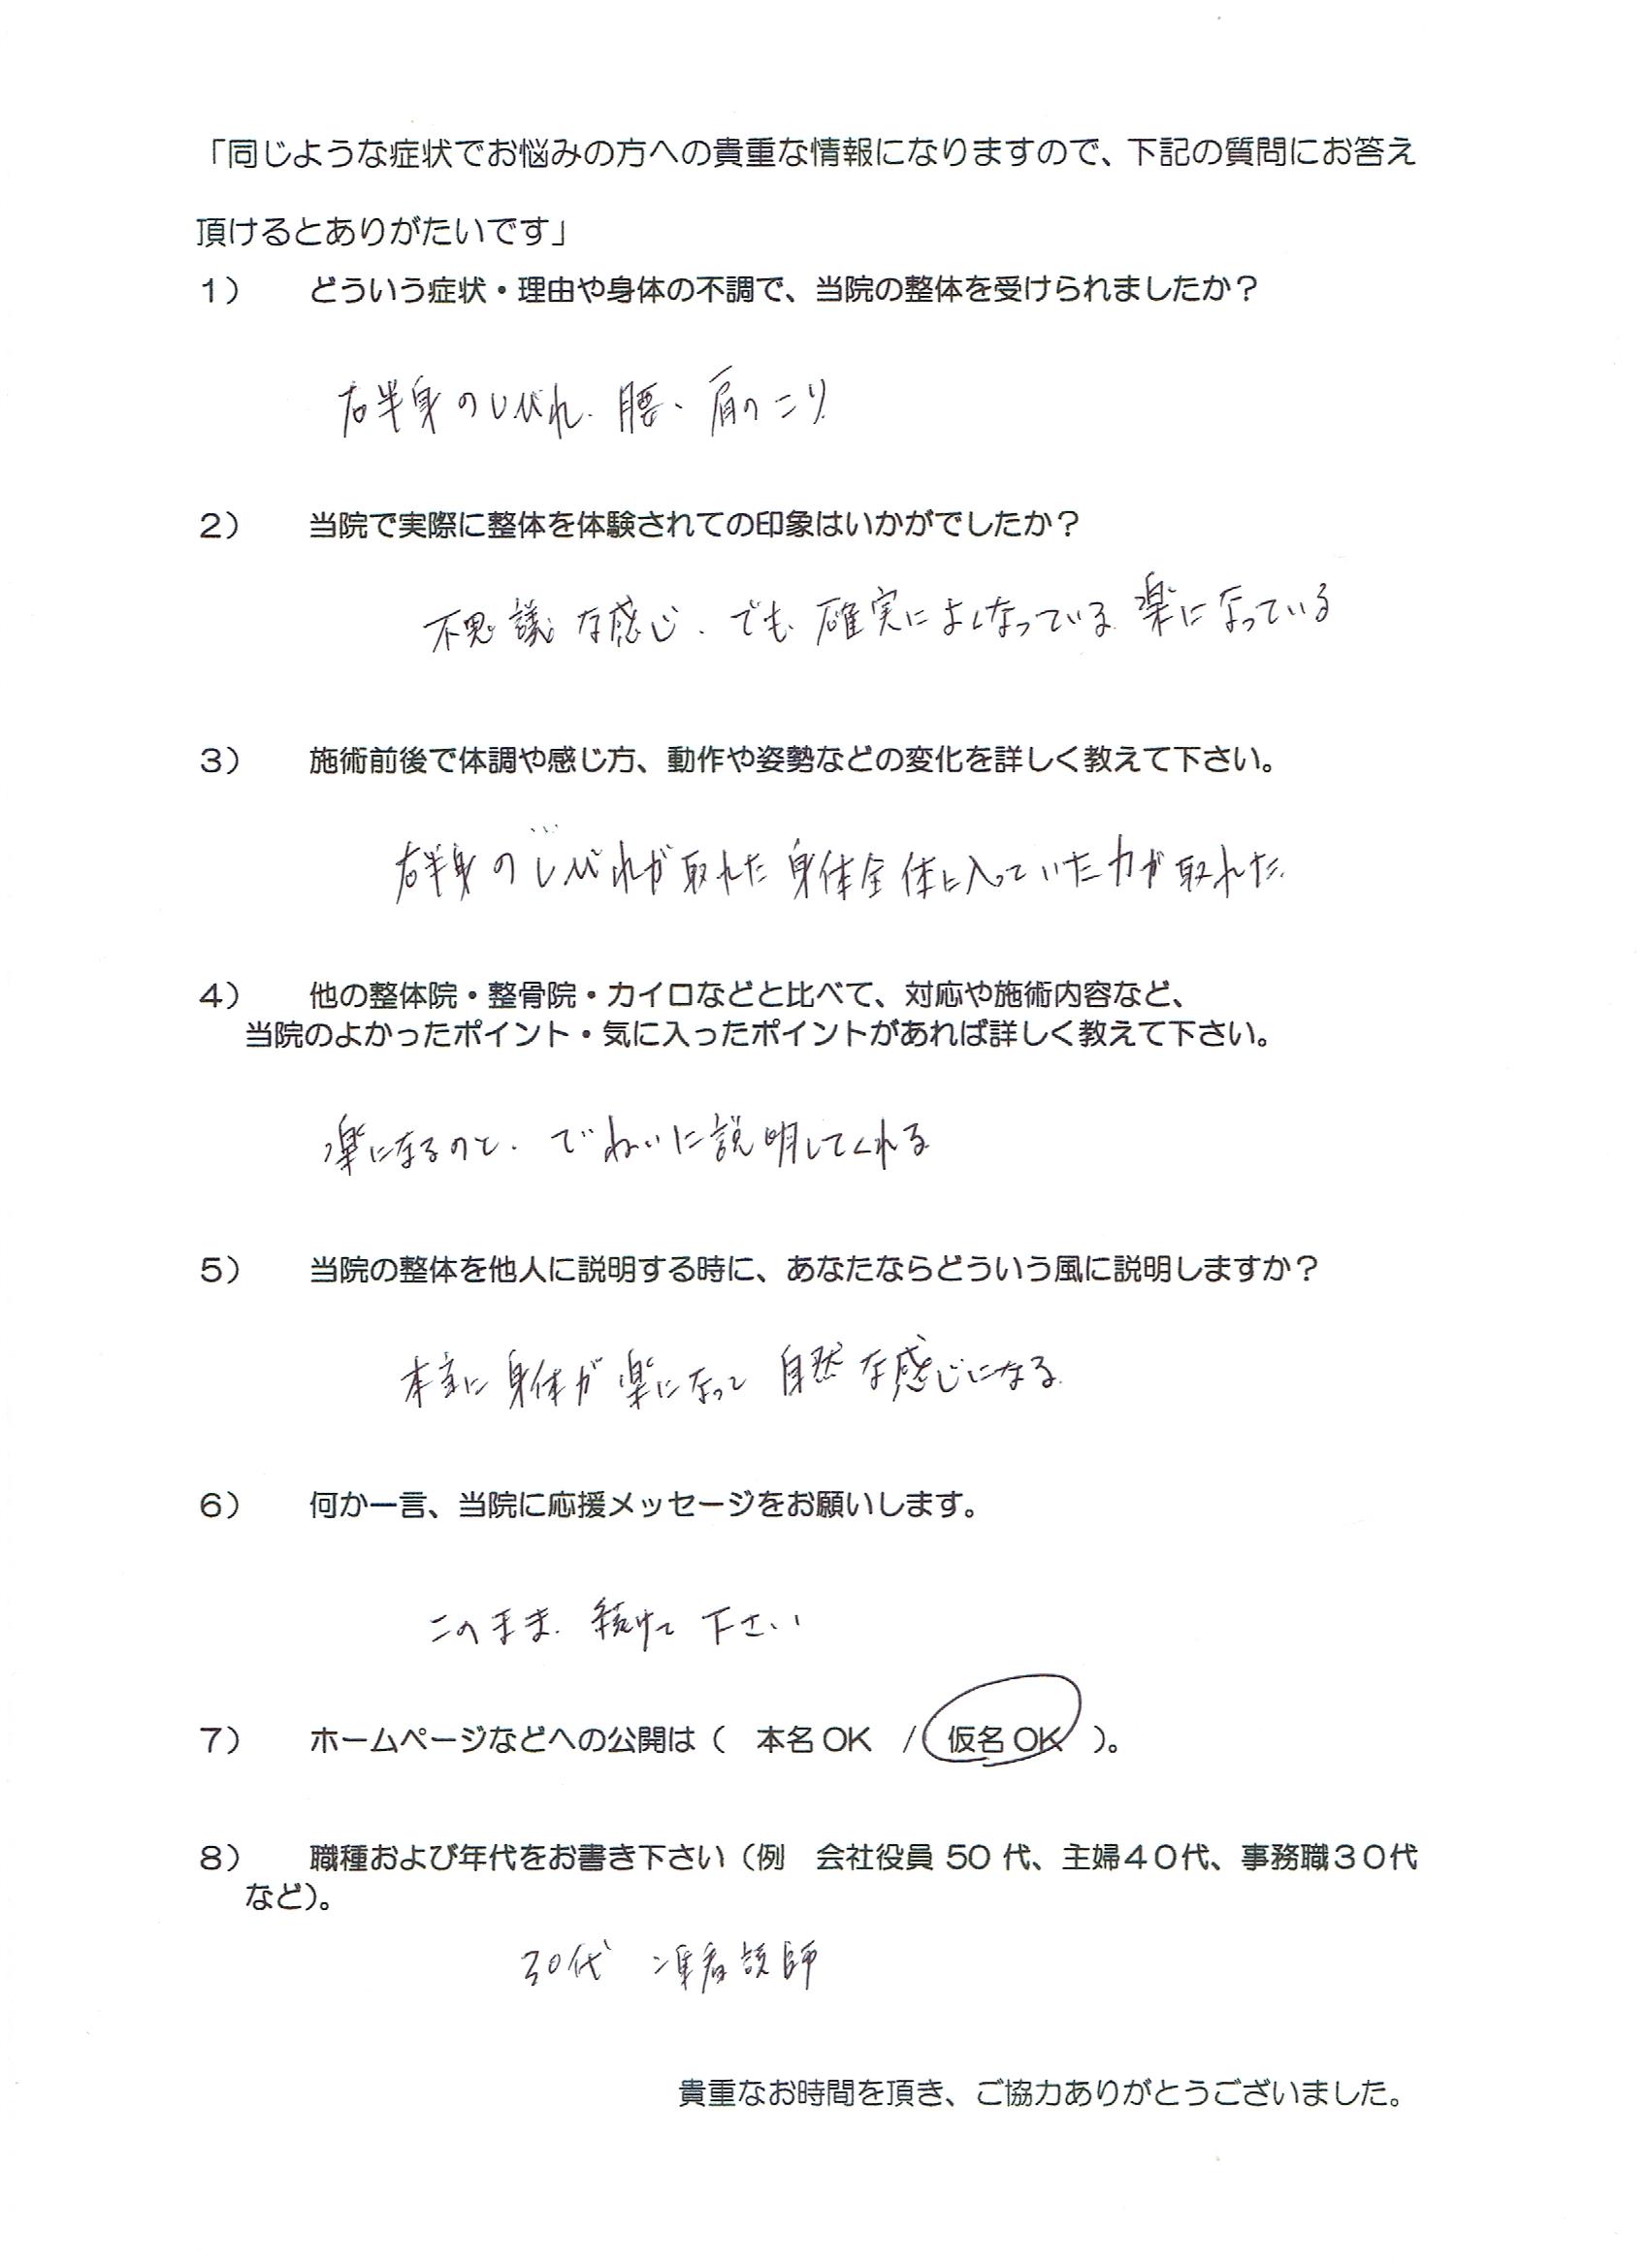 「同じような症状でお悩みの方への貴重な情報になりますので、下記の質問にお答え
頂けるとありがたいです」
１） どういう症状・理由や身体の不調で、当院の整体を受けられましたか？
右半身のしびれ、腰、肩のこり
２） 当院で実際に整体を体験されての印象はいかがでしたか？
不思議な感じ、でも、確実によくなっている 楽になっている
３） 施術前後で体調や感じ方、動作や姿勢などの変化を詳しく教えて下さい。
右半身のしびれが取れた 身体全体に入っていた力が取れた。
４） 他の整体院・整骨院・カイロなどと比べて、対応や施術内容など、
当院のよかったポイント・気に入ったポイントがあれば詳しく教えて下さい。
楽になるのと、ていねいに説明してくれる
５） 当院の整体を他人に説明する時に、あなたならどういう風に説明しますか？
本当に身体が楽になって 自然な感じになる
６） 何か一言、当院に応援メッセージをお願いします。
このまま、続けて下さい
７） ホームページなどへの公開は（ 本名 OK / 仮名 OK ）。
８） 職種および年代をお書き下さい（例 会社役員 50 代、主婦４０代、事務職３０代
など）。
30代 准看護師
貴重なお時間を頂き、ご協力ありがとうございました。